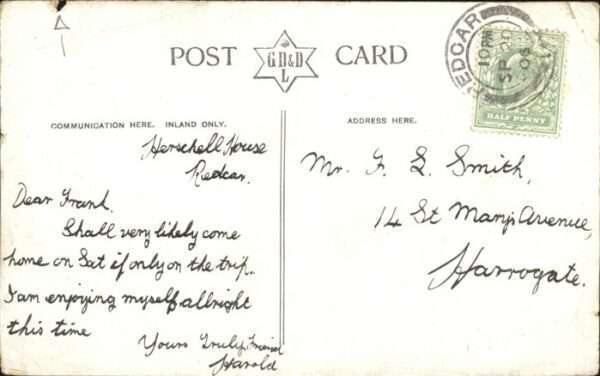 POST CARD
G.D.&D.
L
COMMUNICATION HERE. INLAND ONLY.
ADDRESS HERE.
REDCAR
10 PM
SP
06
HALF PENNY
Herschell House
Redcar.
Dear Frank.
Shall very likely come
home on Sat if only on the trip.
I am enjoying myself allright
this time
Yours Truly, Friend
Harold
Mr. F. L. Smith,
14 St Mary's Avenue,
Harrogate.